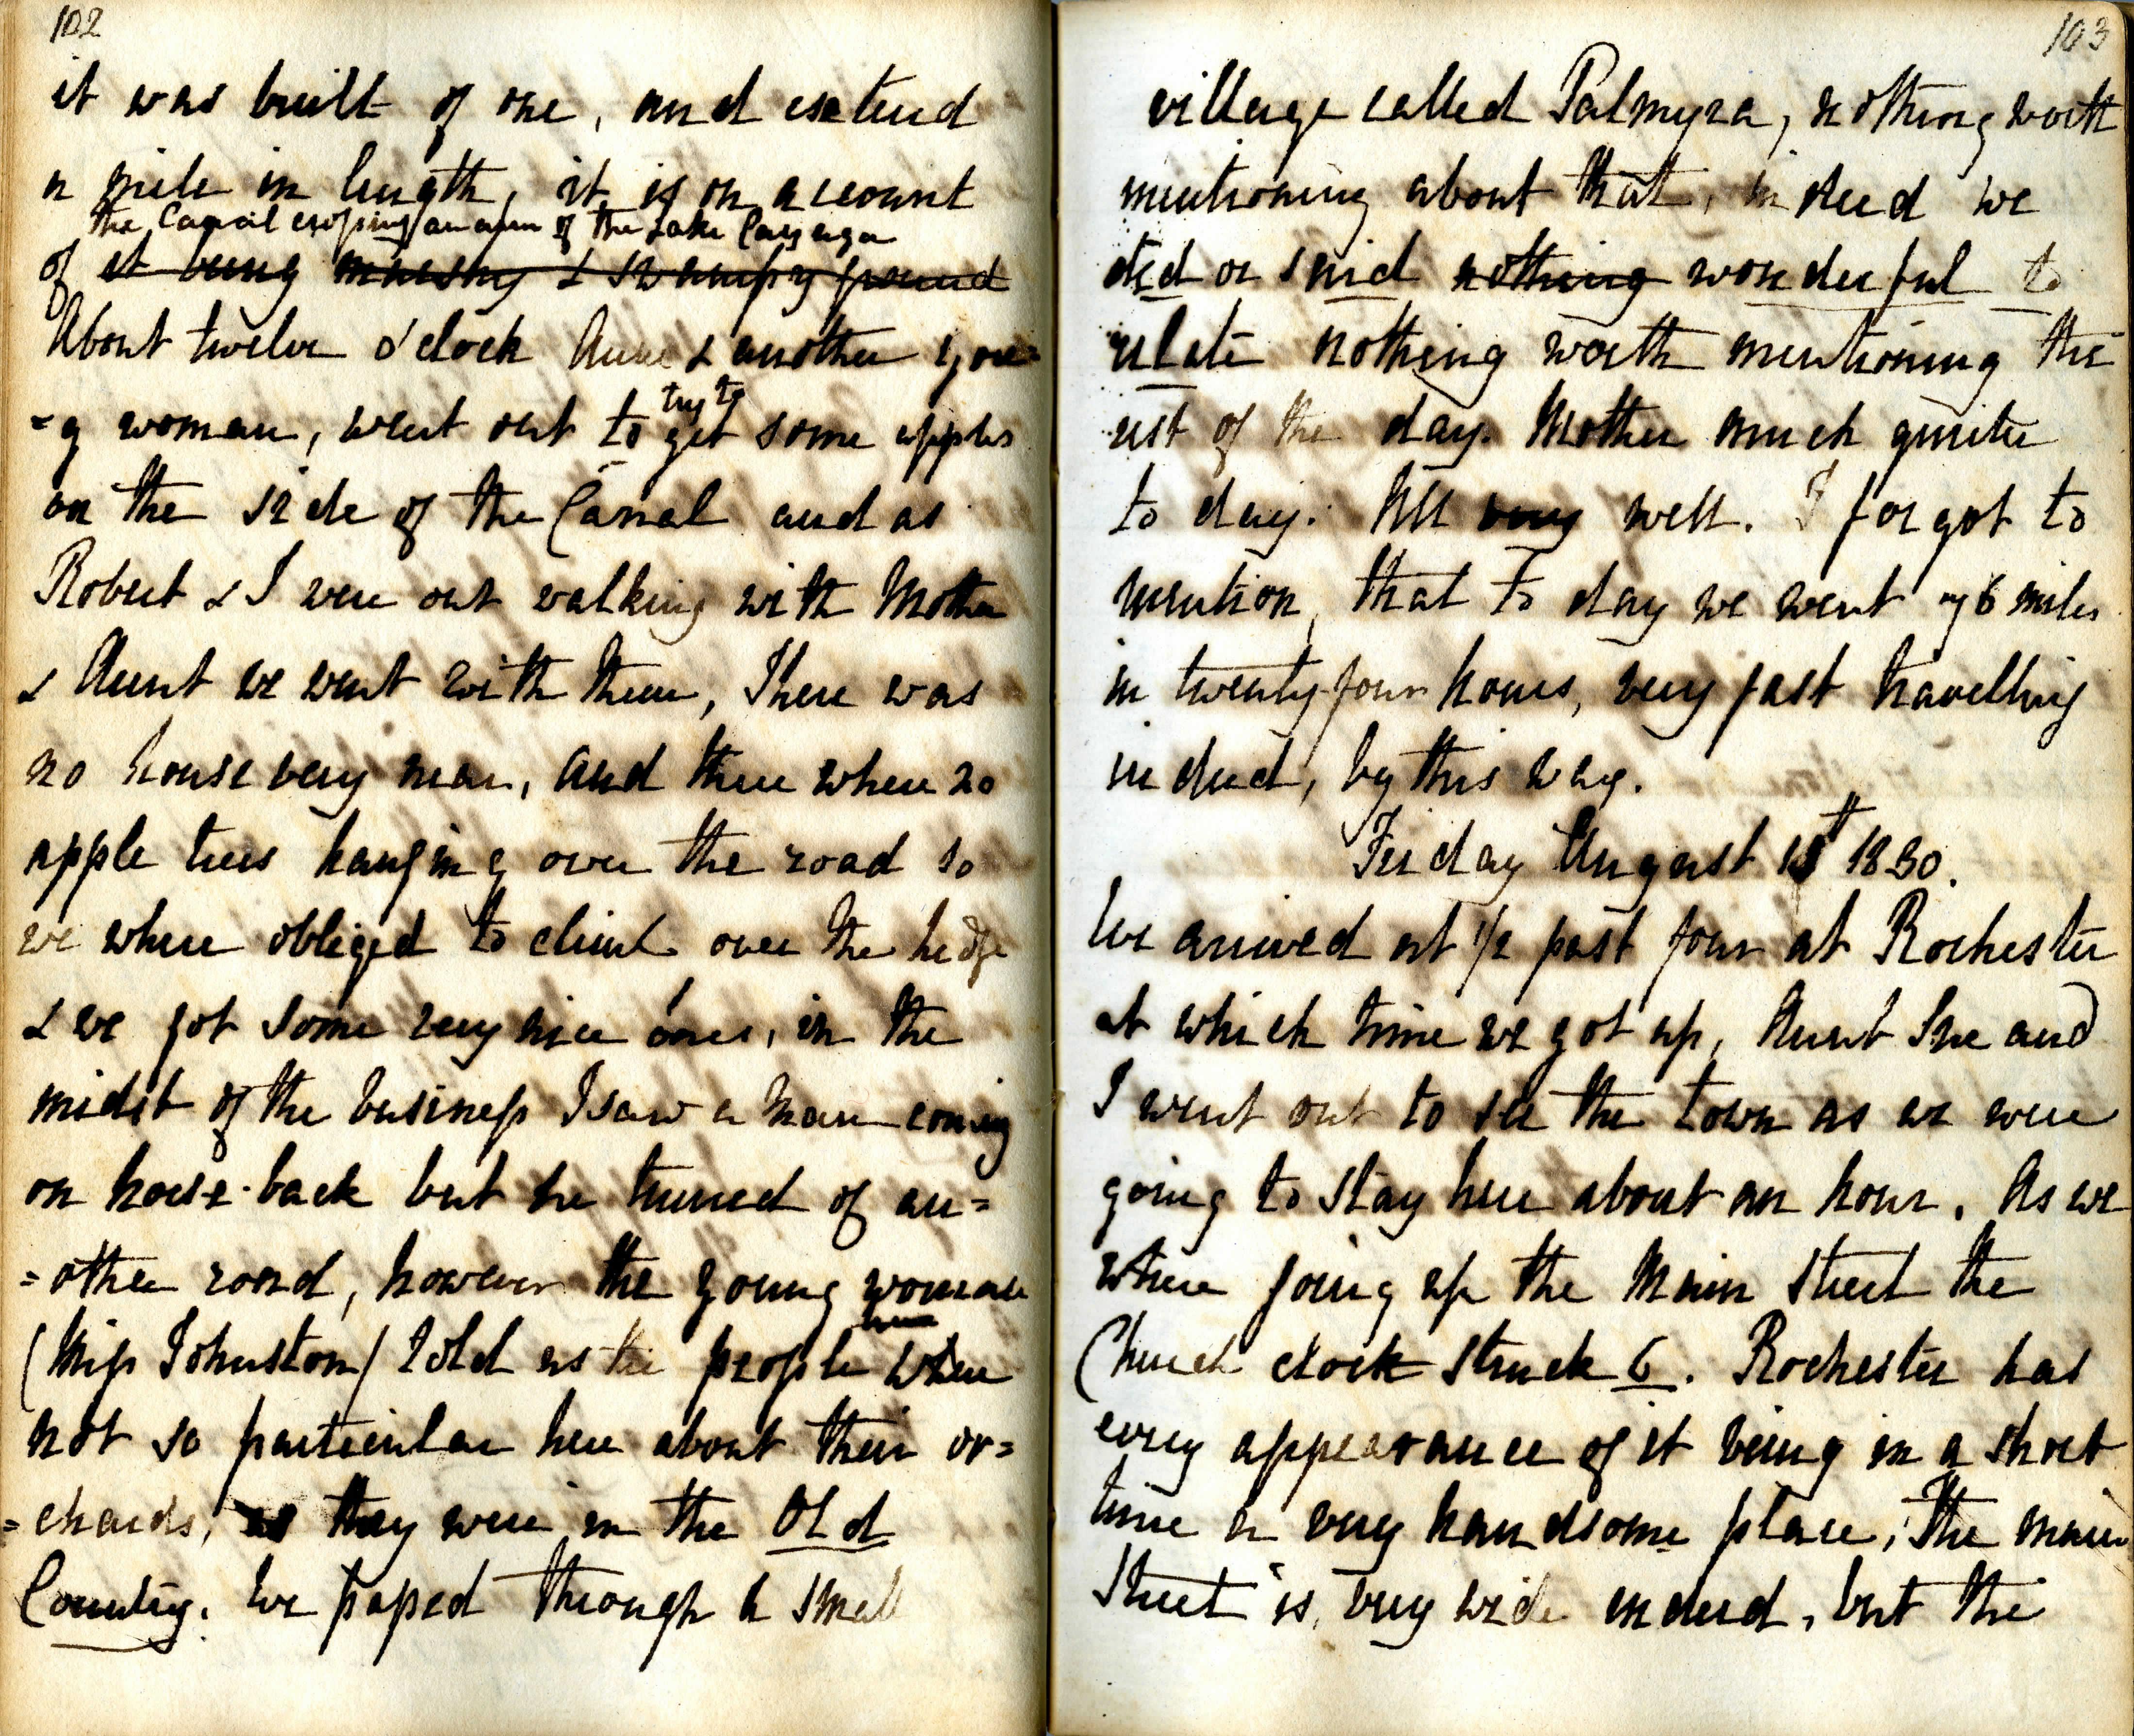 102
it was built of one, and extend
a mile in length, it is on account
the Canal crossing an arm of the Lake Cayuga
of it being marshy & swampy ground
About twelve o'clock Anne & another youn=
try to
=g woman, went out to get some apples
on the side of the Canal and as
Robert & I were out walking with Mother
& Aunt we went with them, There was
no house very near, and there where no
apple trees hanging over the road so
we where obliged to climb over the hedge
& we got some very nice ones, in the
midst of the business I saw a man coming
on horse-back but he turned of an=
=other road, however the young woman
(Miss Johnston) told us the people where
not so particular here about their or=
=chards, as they were in the Old
Country. We passed through a small
103
village called Palmyra, nothing worth
mentioning about that, indeed we
did or said nothing wonderful to
relate nothing worth mentioning the
rest of the day. Mother much quiter
to day. All very well. I forgot to
mention, that to day we went 76 miles
in twenty four hours, very fast travelling
indeed, by this way.
Friday August 13th 1830.
We arrived at 1/2 past four at Rochester
at which time we got up, Aunt She and
I went out to see the town as we were
going to stay here about an hour. As we
where going up the Main Street the
Church clock struck 6. Rochester has
every appearance of it being in a short
time a very handsome place, The main
Street is very wide indeed, but the